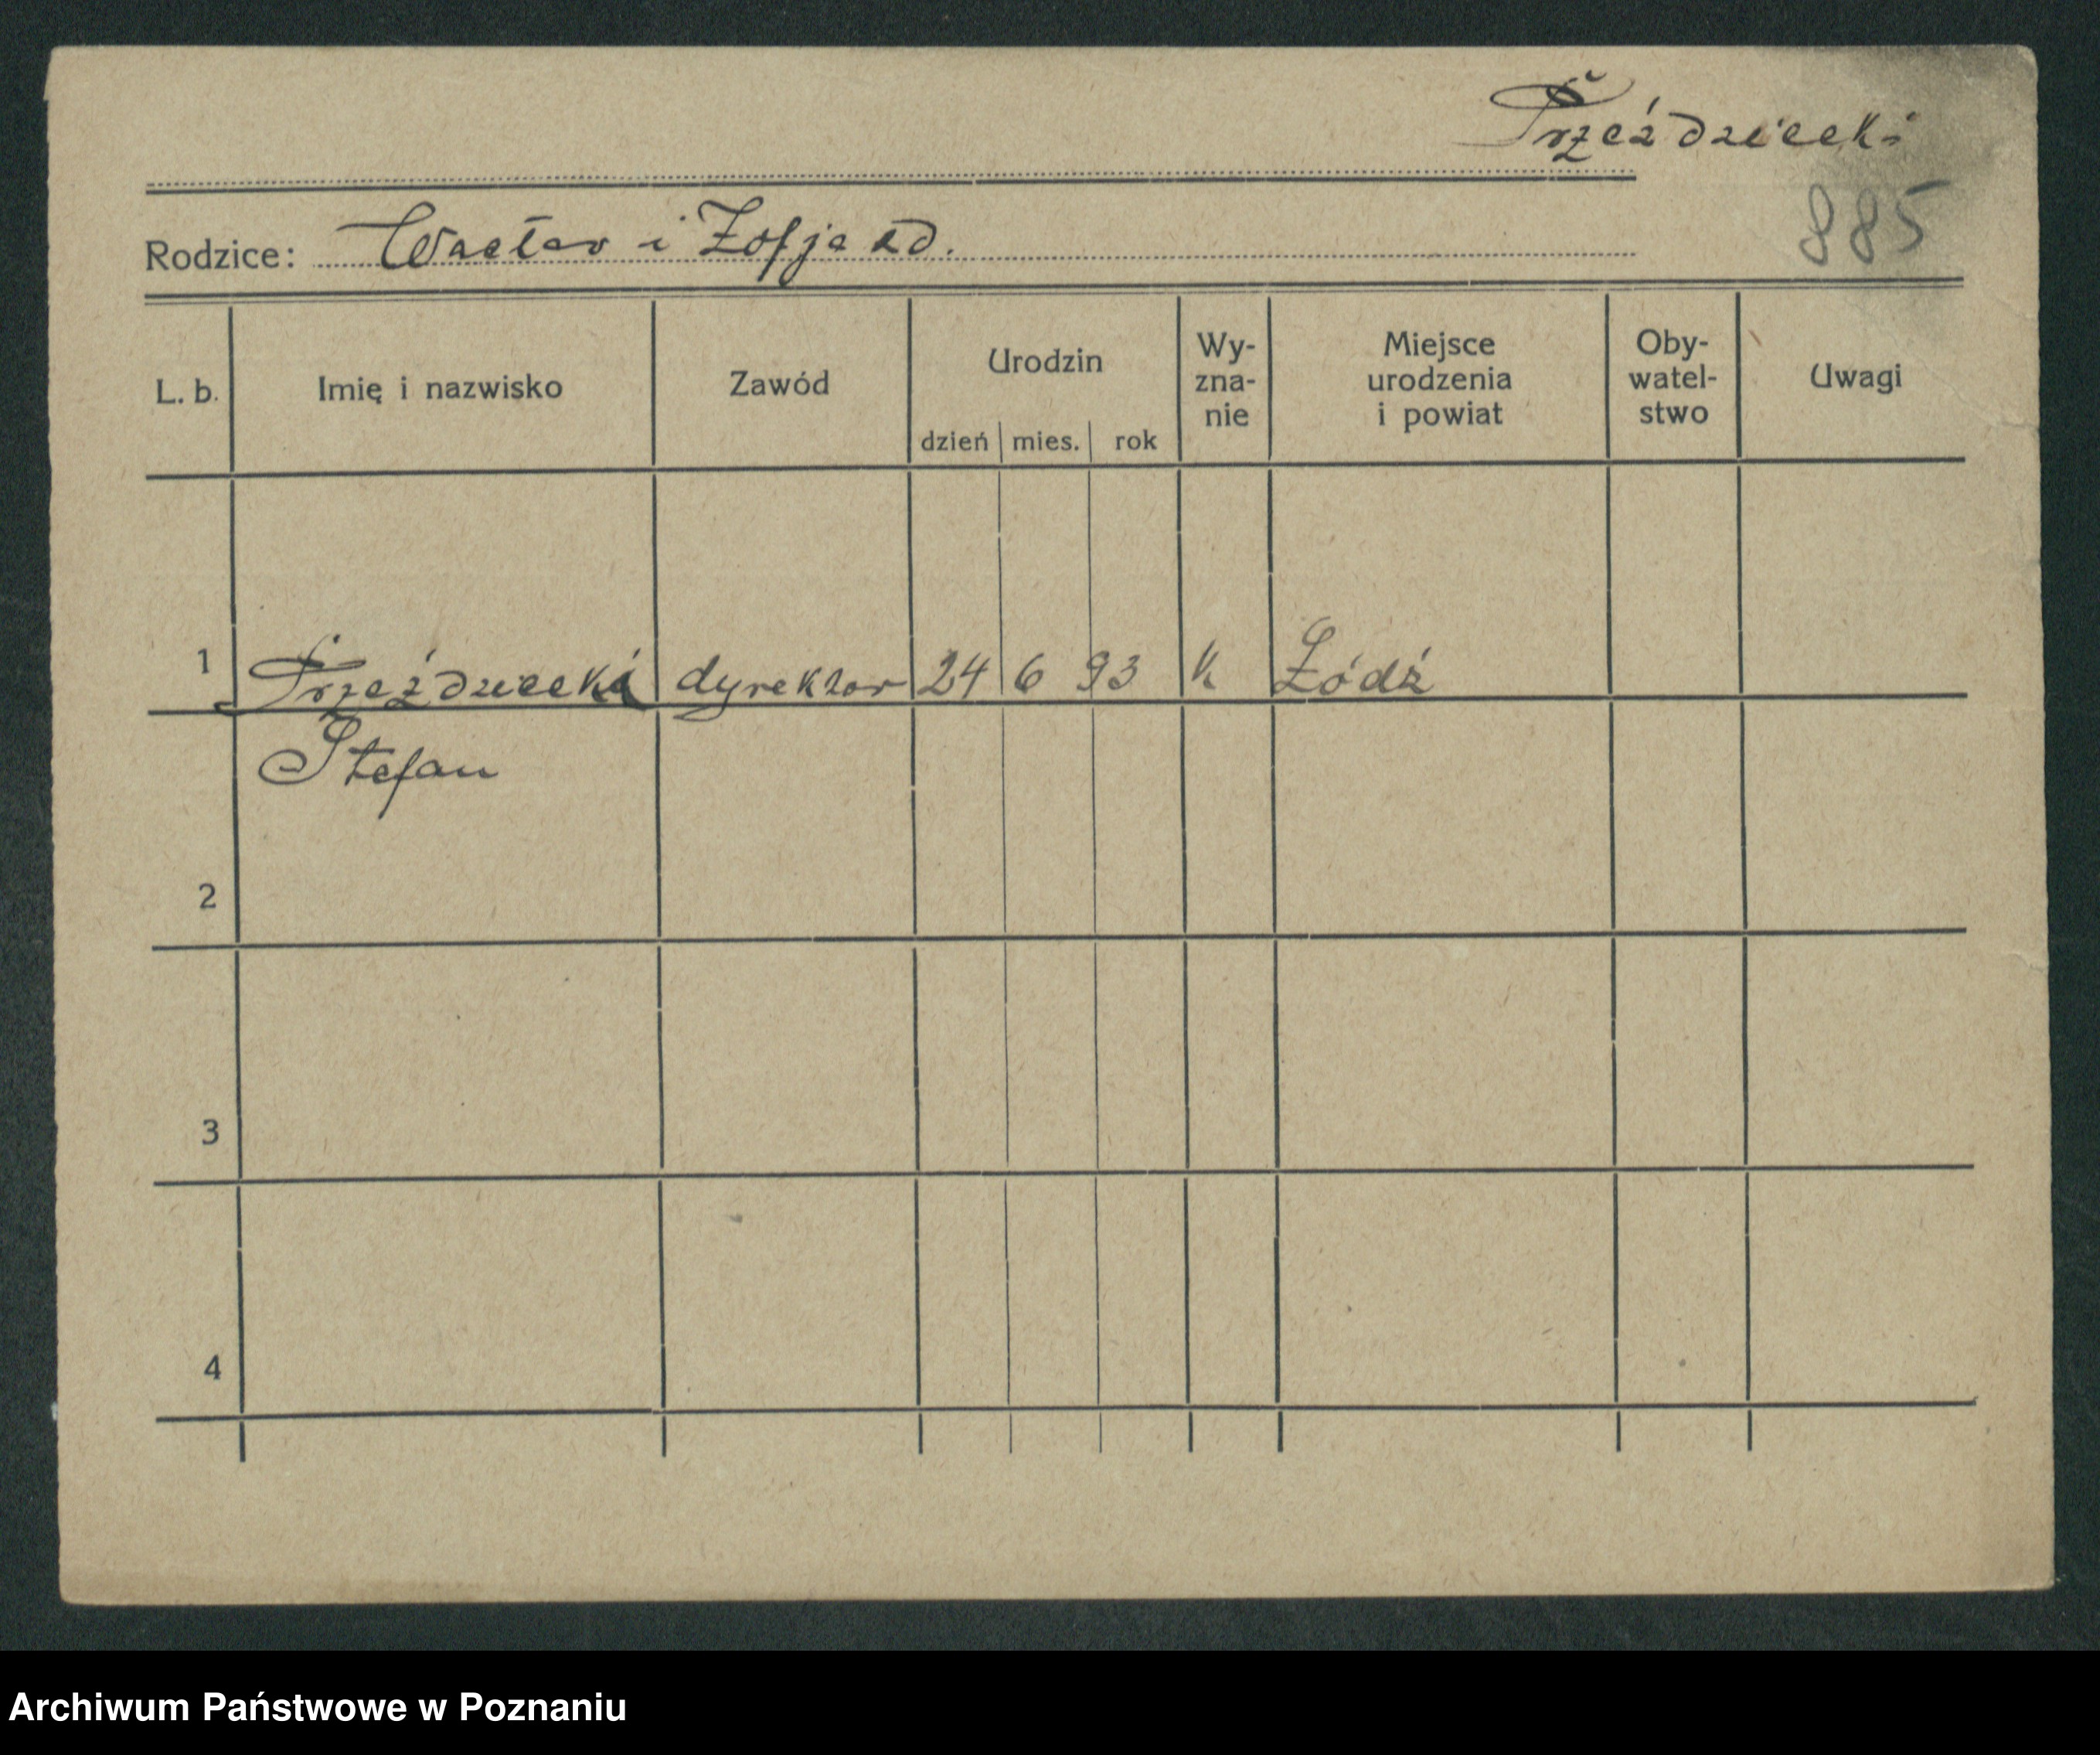 Przeździecki
Rodzice: Wacław i Zofja zd.
885
L. b. Imię i nazwisko Zawód Urodzin dzień mies. rok Wy-zna-nie Miejsce urodzenia i powiat Oby-watel-stwo Uwagi
1 Przeździecki dyrektor 24 6 93 k Łódź
Stefan
2
3
4
Archiwum Państwowe w Poznaniu